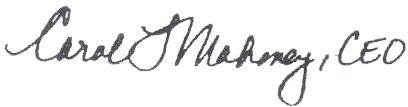 Carol L Mahoney, CEO